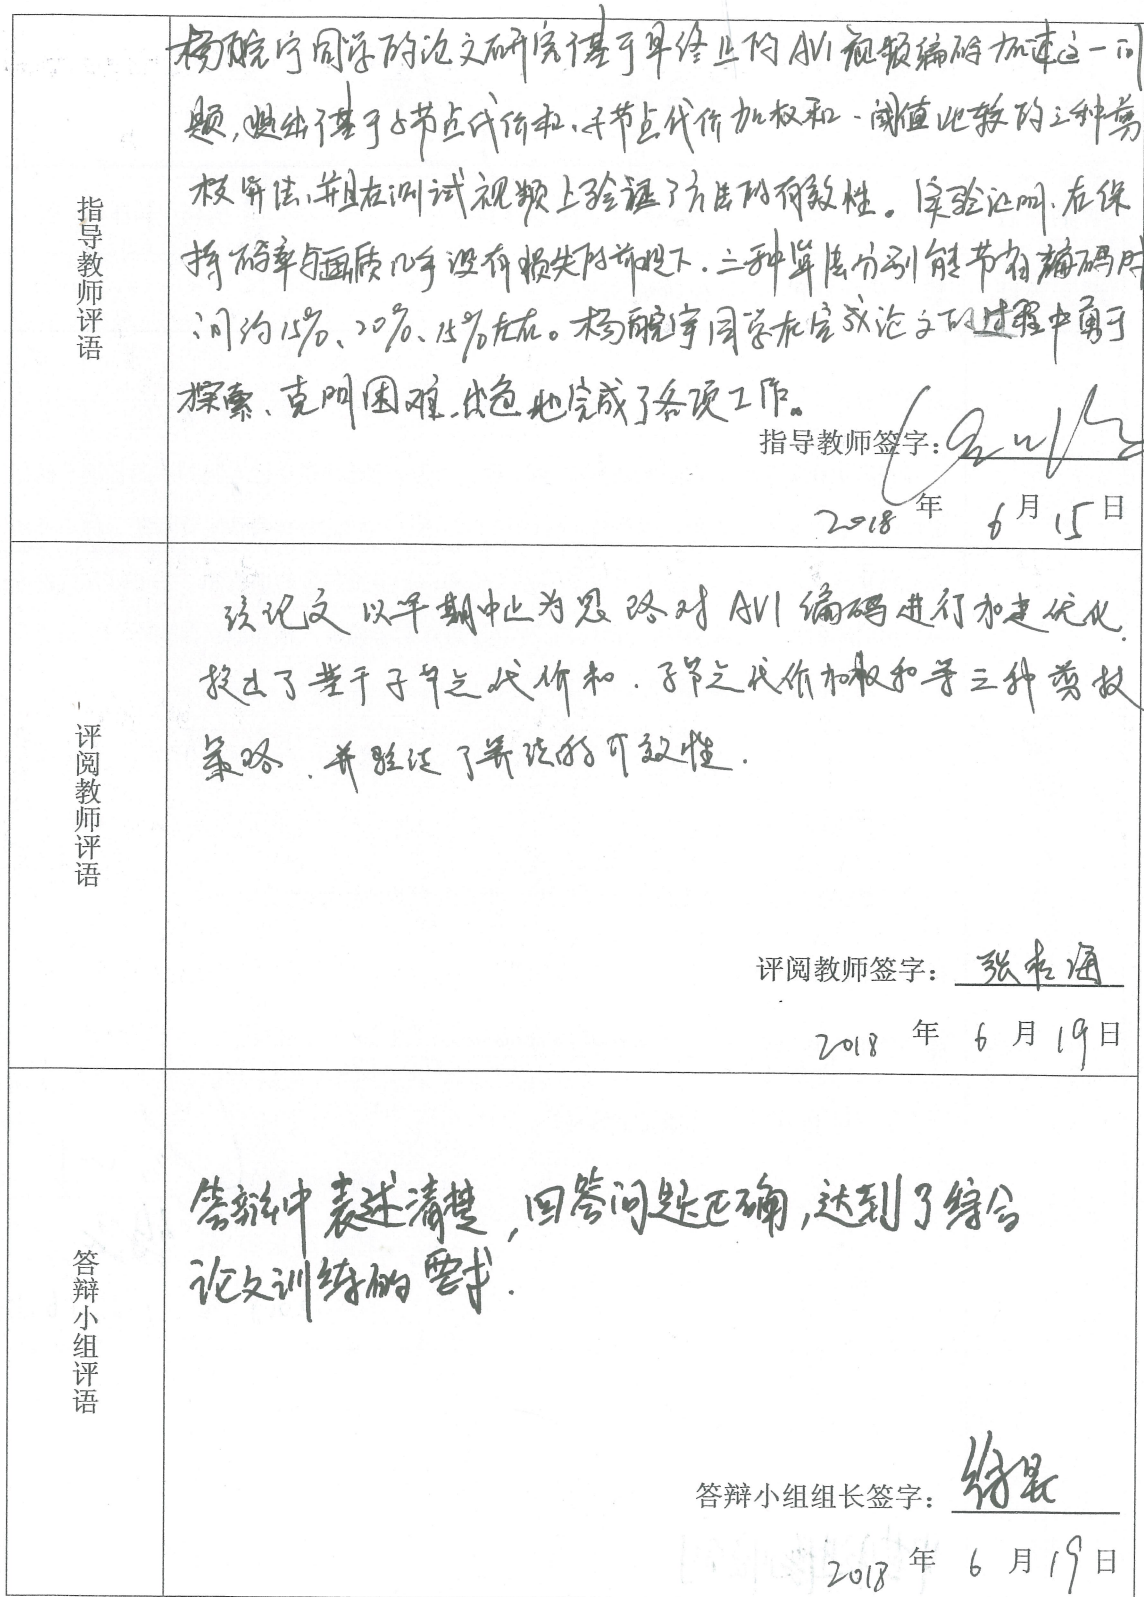 指导教师评语
杨皖宁同学的论文研究了基于早终止的AV1视频编码加速这一问
题,提出了基于子节点代价和、子节点代价加权和、阈值比较的三种剪
枝算法,并且在测试视频上验证了方法的有效性。实验证明,在保
持码率与画质几乎没有损失的前提下,三种算法分别能节省编码时
间约15%、20%、15%左右。杨皖宁同学在完成论文的过程中勇于
探索、克服困难、出色地完成了各项工作。
指导教师签字:
2018 年 6 月 15 日
评阅教师评语
该论文以早期中止为思路对AV1编码进行加速优化,
提出了基于子节点代价和、子节点代价加权和等三种剪枝
策略,并验证了算法的有效性.
评阅教师签字: 张松海
2018 年 6 月 19 日
答辩小组评语
答辩中表述清楚,回答问题正确,达到了综合
论文训练的要求.
答辩小组组长签字: 徐昆
2018 年 6 月 19 日